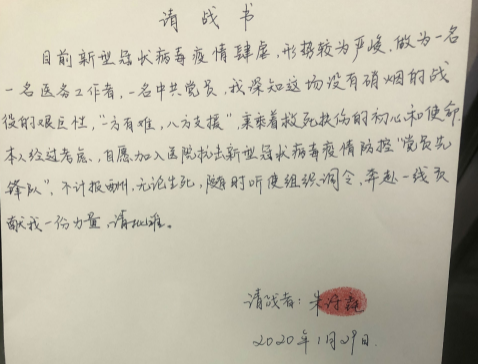 请战书
目前新型冠状病毒疫情肆虐，形势较为严峻，做为一名
一名医务工作者，一名中共党员，我深知这场没有硝烟的战
役的艰巨性，“一方有难，八方支援”，秉乘着救死扶伤的初心和使命，
本人经过考虑、自愿加入医院抗击新型冠状病毒疫情防控“党员先
锋队”，不计报酬，无论生死，随时听候组织调令，奔赴一线贡
献我一份力量，请批准。
请战者：朱
2020年1月29日.